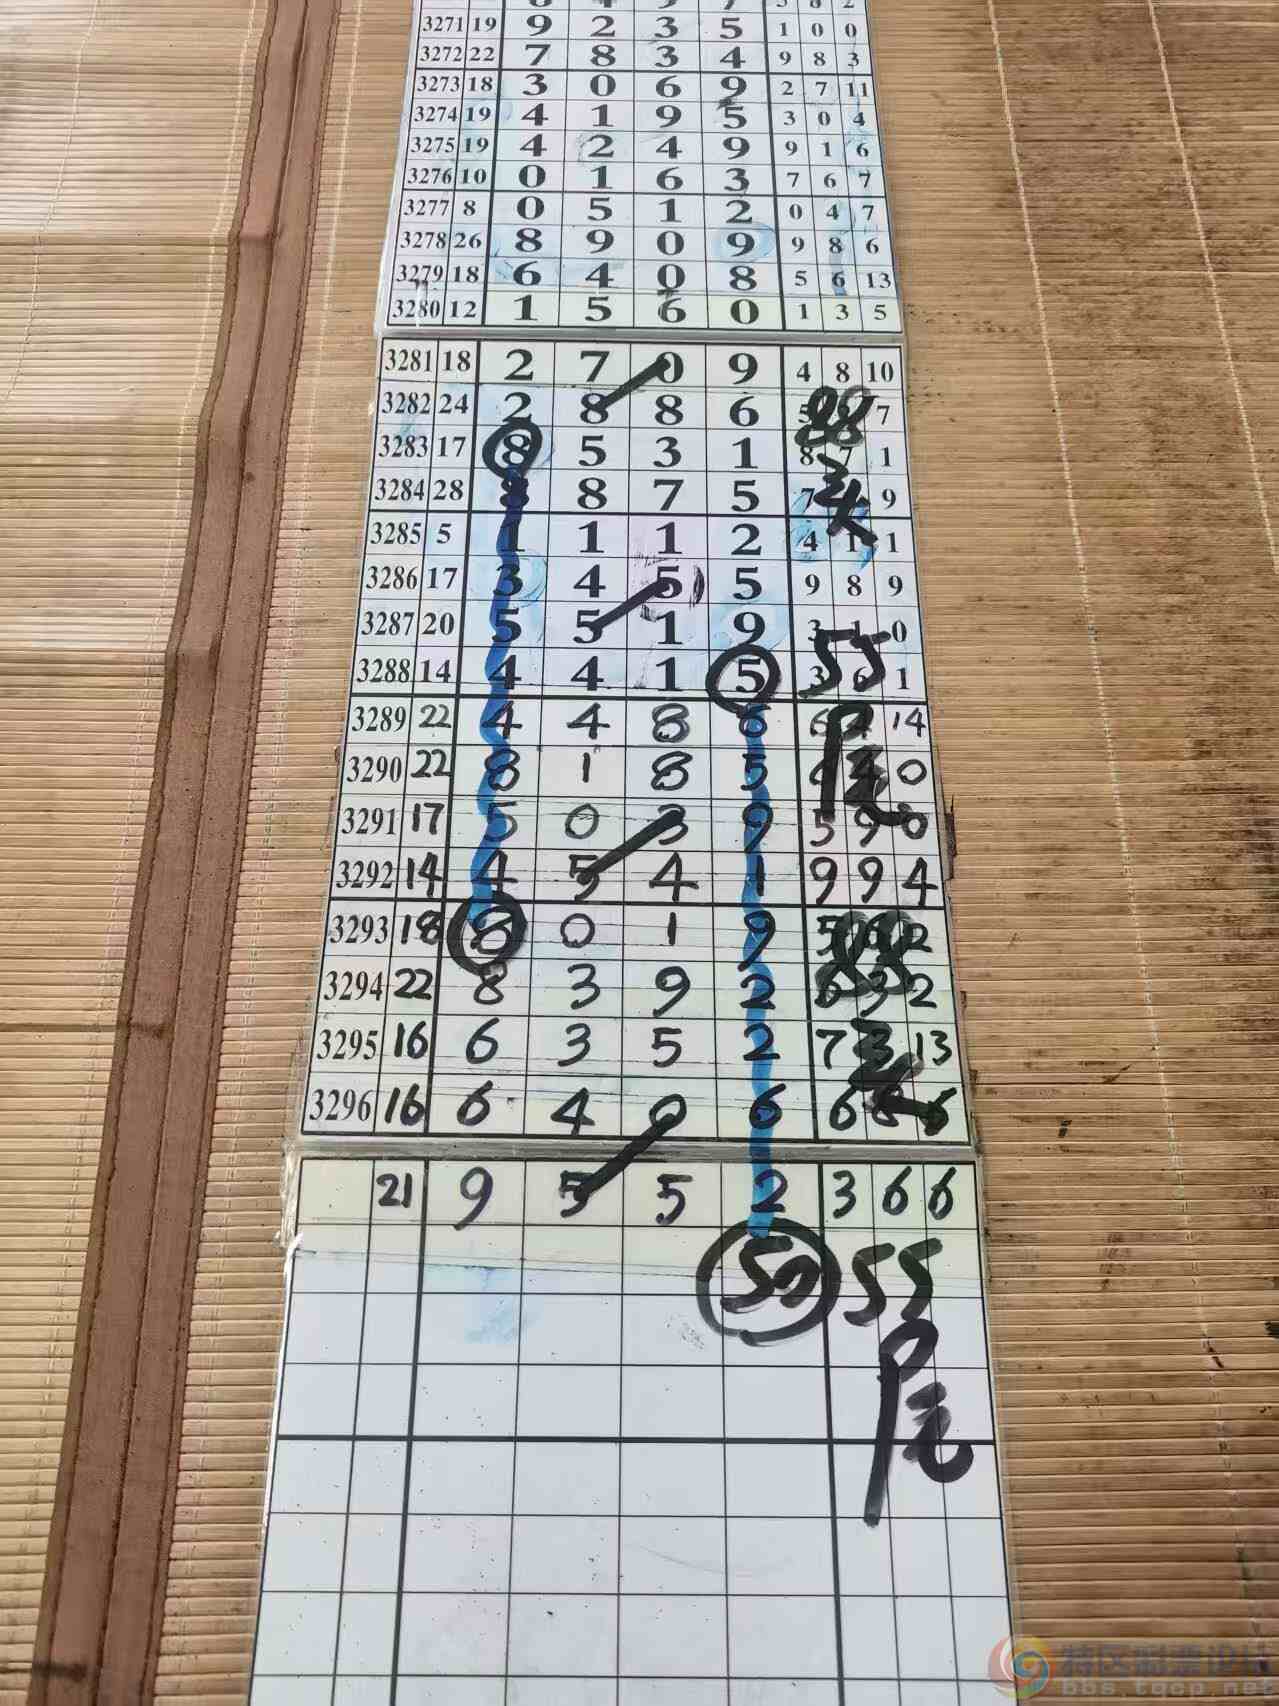 3271 19 9 2 3 5 1 0 0
3272 22 7 8 3 4 9 8 3
3273 18 3 0 6 9 2 7 11
3274 19 4 1 9 5 3 0 4
3275 19 4 2 4 9 9 1 6
3276 10 0 1 6 3 7 6 7
3277 8 0 5 1 2 0 4 7
3278 26 8 9 0 9 9 8 6
3279 18 6 4 0 8 5 6 13
3280 12 1 5 6 0 1 3 5
3281 18 2 7 0 9 4 8 10
3282 24 2 8 8 6 5 7
88
3283 17 8 5 3 1 8 7 1
3284 28 8 8 7 5 7 9
头
3285 5 1 1 1 2 4 1 1
3286 17 3 4 5 5 9 8 9
3287 20 5 5 1 9 3 1 0
55
3288 14 4 4 1 5 3 6 1
3289 22 4 4 8 6 6 14
3290 22 8 1 8 5 4 0
3291 17 5 0 3 9 5 9 0
3292 14 4 5 4 1 9 9 4
3293 18 8 0 1 9 5 6 2
88
3294 22 8 3 9 2 6 3 2
3295 16 6 3 5 2 7 3 13
头
3296 16 6 4 0 6 6 6 6
21 9 5 5 2 3 6 6
50 55
尾
特区彩票论坛
bbs.tqcp.net